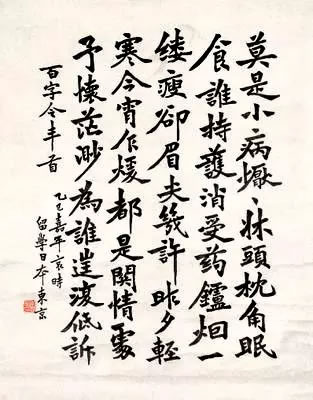 莫是小病懨〻牀頭枕角眠
食誰持護消受药鑪烟一
缕瘦卻眉夫幾許昨夕輕
寒今宵乍煖都是関情處
予懷茫渺為誰遑復低訴
百字令半首
乙巳嘉平哀時
留學日本東京